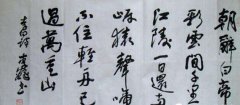 朝辭白帝
彩雲間千里
江陵一日還兩
岸猿聲啼
不住輕舟已
過萬重山